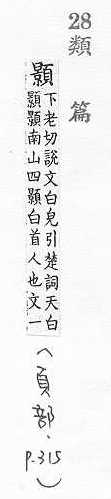 28
類 篇
顥 下老切說文白皃引楚詞天白
顥顥南山四顥白首人也文一
(頁部、
p.315)